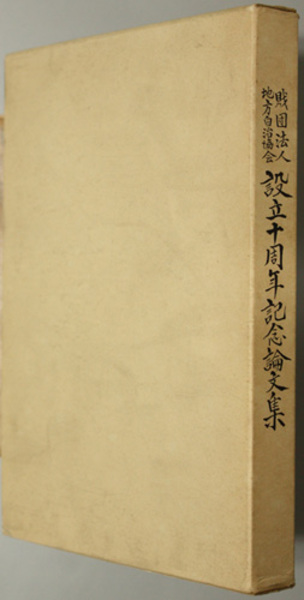 財団法人
地方自治協会
設立十周年記念論文集